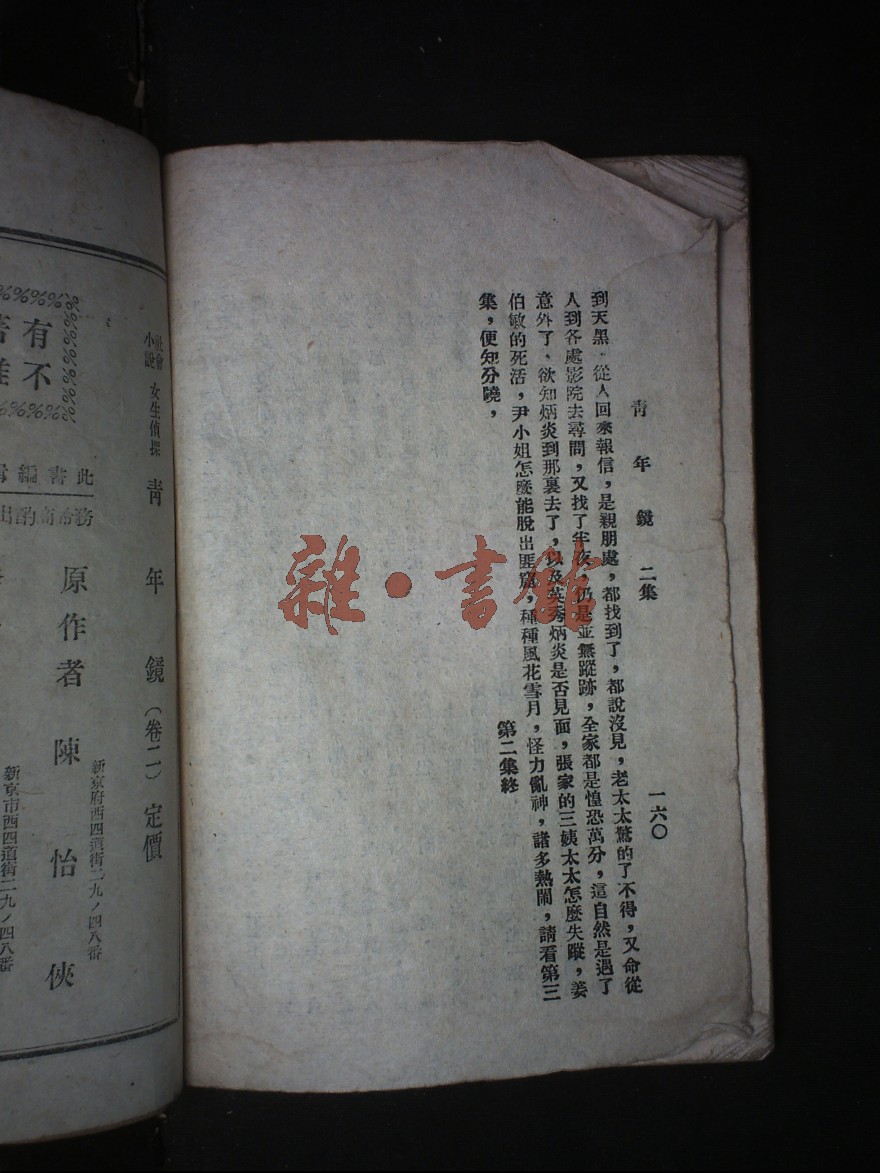 青年鏡 二集
一六〇
到天黑．從人回來報信，是親朋處，都找到了，都說沒見，老太太驚的了不得，又命從
人到各處影院去尋問，又找了半夜，仍是並無蹤跡，全家都是惶恐萬分，這自然是遇了
意外了．欲知炳炎到那裏去了，以及英秀炳炎是否見面，張家的三姨太太怎麼失蹤，姜
伯敏的死活，尹小姐怎麼能脫出匪窟，種種風花雪月，怪力亂神，諸多熱鬧，請看第三
集，便知分曉，
第二集終
雜・書館
社會小說 女生偵探 青年鏡（卷二）定價
新京府西四道街二九ノ四八番
原作者 陳怡俠
新京市西四道街二九ノ四八番
此書編
有
不